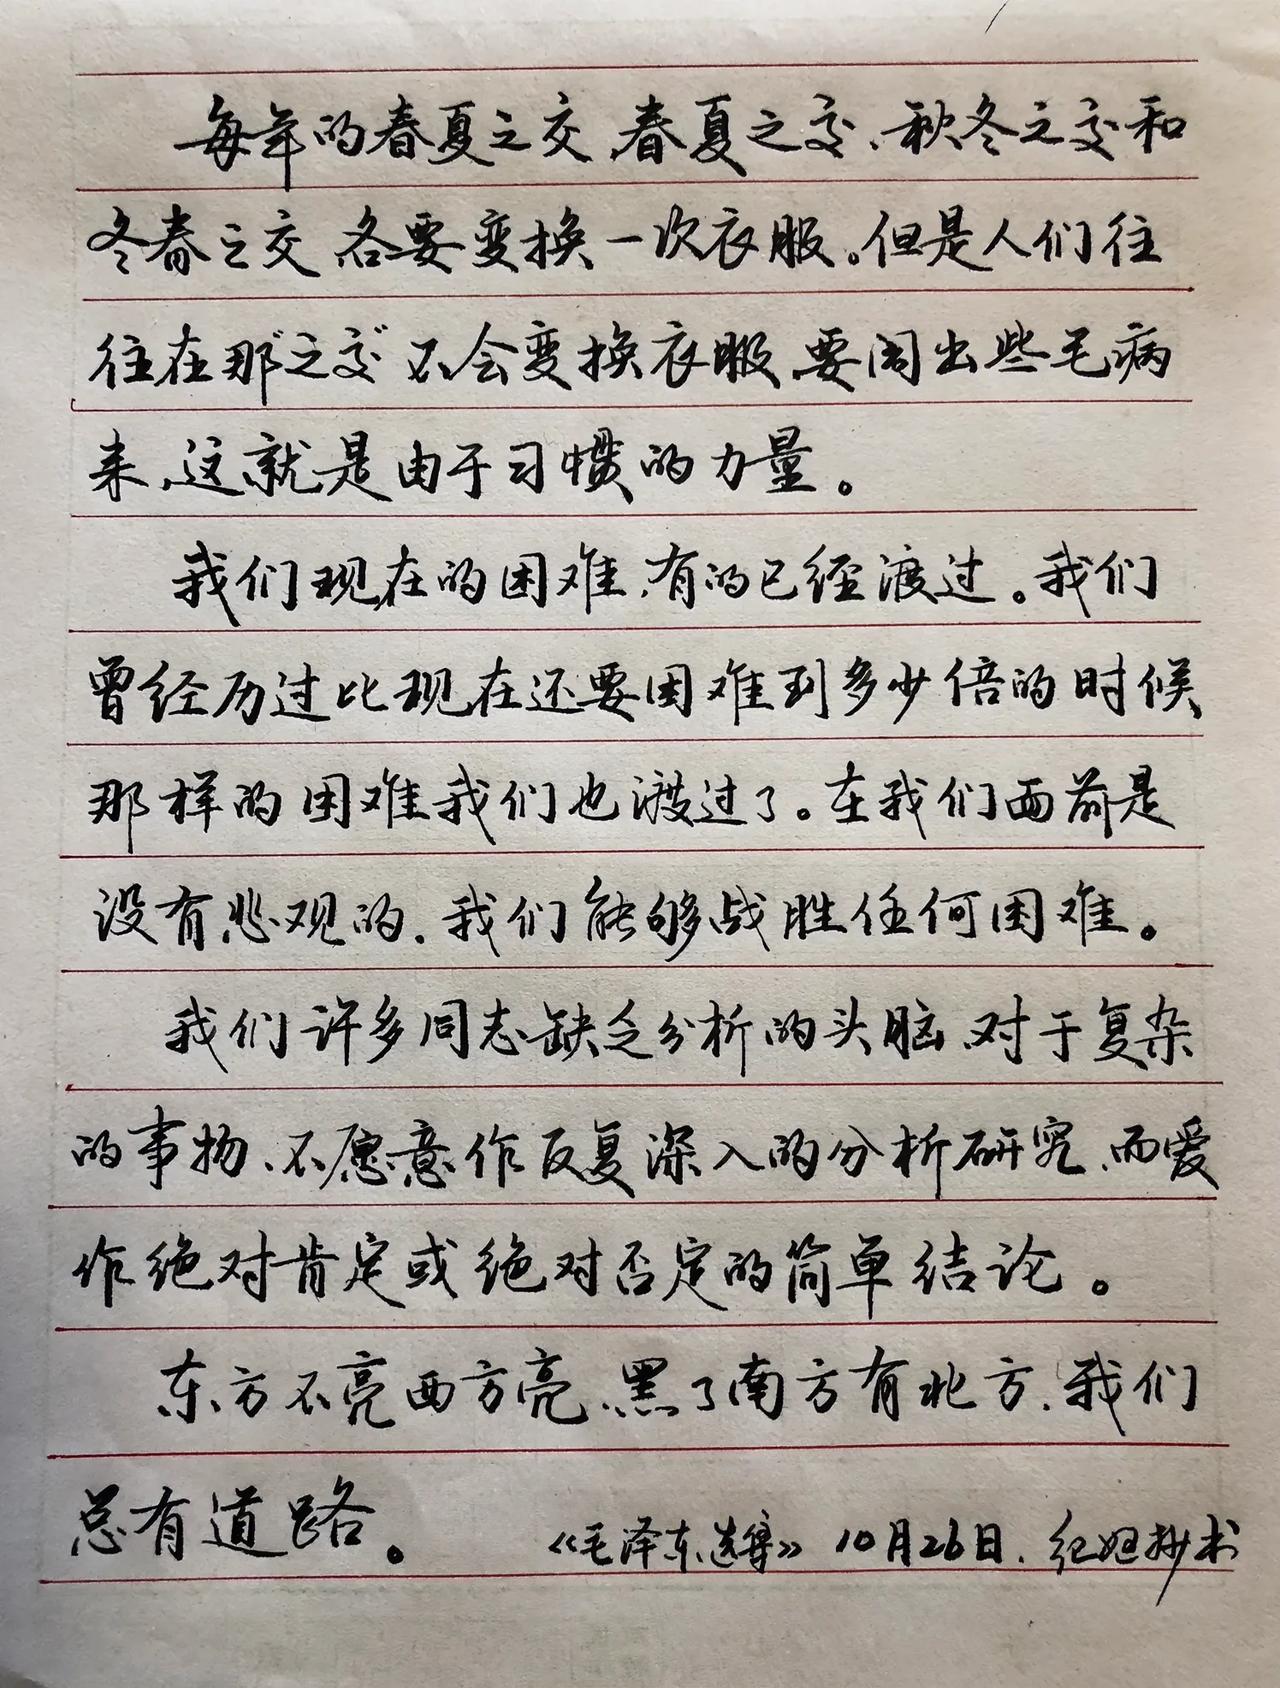 每年的春夏之交、春夏之交、秋冬之交和
冬春之交各要变换一次衣服。但是人们往
往在那"之交"不会变换衣服、要闹出些毛病
来、这就是由于习惯的力量。
我们现在的困难、有的已经渡过。我们
曾经历过比现在还要困难到多少倍的时候、
那样的困难我们也渡过了。在我们面前是
没有悲观的、我们能够战胜任何困难。
我们许多同志缺乏分析的头脑、对于复杂
的事物、不愿意作反复深入的分析研究、而爱
作绝对肯定或绝对否定的简单结论。
东方不亮西方亮、黑了南方有北方、我们
总有道路。
《毛泽东选集》10月26日、红妞抄书